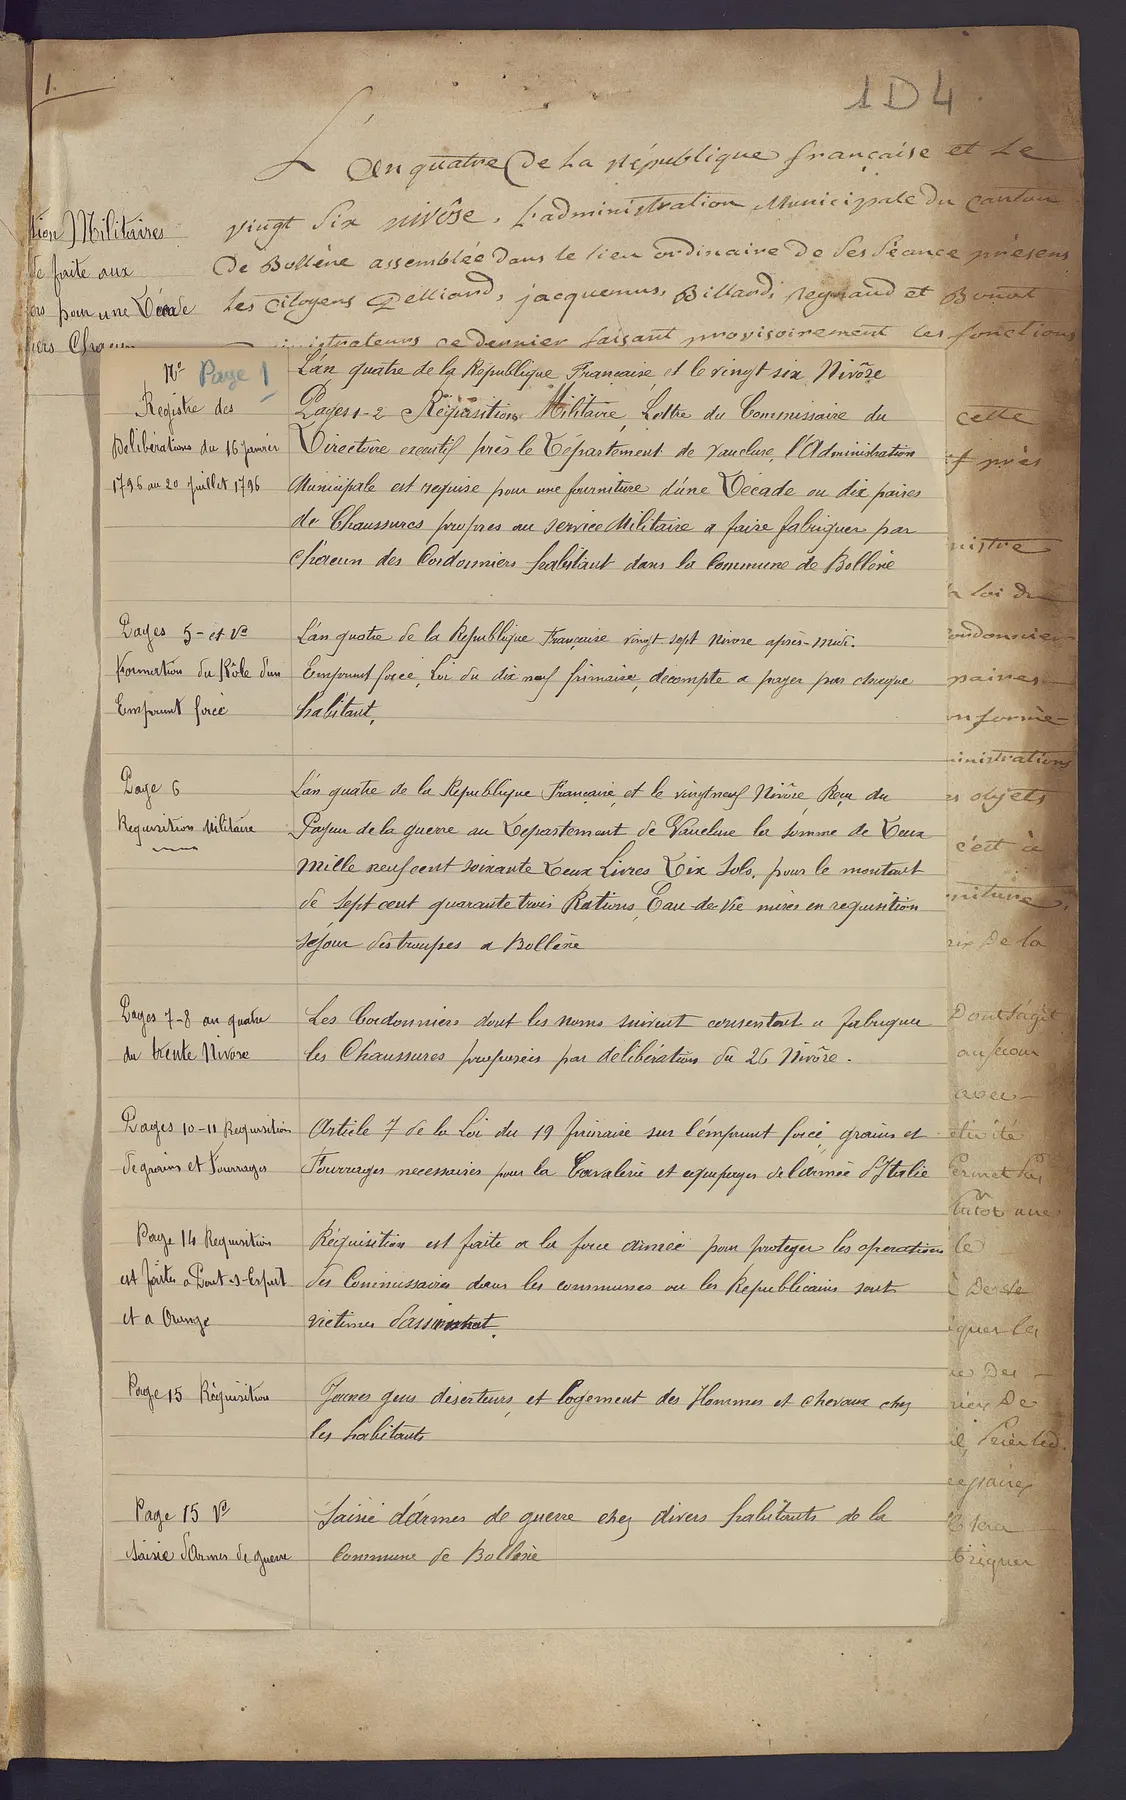 1.
1D4
L'an quatre De la République française et Le
vingt Six nivôse, L'administration Municipale du canton
De Bollène assemblée Dans le lieu ordinaire de Ses Séance présens
Les Citoyens Pelliard, jacquemus, Billard, Reynaud et
tion Militaires
de faite aux
pour une Décade
istrateurs ce dernier faisant provisoirement les fonctions
N° Page 1
L'an quatre de la République Francaise, et le vingt six Nivôse
Registre des
Pages 1-2 Réquisitions Militaire, Lettre du Commissaire du
Délibérations du 16 janvier
Directoire executif près le Département de Vaucluse, l'Administration
1796 au 20 juillet 1796
Municipale est requise pour une fourniture d'une Décade ou dix paires
de Chaussures propres au service Militaire a faire fabriquer par
chacun des Cordonniers habitant dans la Commune de Bollène
Pages 5 - et V°
L'an quatre de la République Francaise vingt sept Nivose après-midi.
Formation du Rôle d'un
Emprunt forcé, Loi du dix neuf frimaire, décompte a payer par chaque
Emprunt forcé
habitant,
Page 6
L'an quatre de la République Francaise, et le vingt neuf Nivôse Reçu du
Requisition Militaire
Payeur de la guerre au Departement de Vaucluse la somme de Deux
Mille neuf cent soixante Deux Livres Dix Sols, pour le montant
de Sept cent quarante trois Rations, Eau-de-Vie mises en requisition
séjour des troupes a Bollène
Pages 7-8 an quatre
Les Cordonniers dont les noms suivent consentent a fabriquer
du trente Nivose
les Chaussures proposées par délibération du 26 Nivôse.
Pages 10-11 Requisition
Article 7 de la Loi du 19 frimaire sur l'emprunt forcé, grains et
de grains et Fourrages
Fourrages necessaires pour la Cavalerie et equipages de l'armée d'Italie
Page 14 Requisition
Réquisition est faite a la force armée pour proteger les operations
est faite a Pont-S-Esprit
des Commissaires dans les communes ou les Republicains sont
et a Orange
victimes d'assassinat.
Page 15 Réquisition
Jeunes gens deserteurs, et logement des Hommes et chevaux chez
les habitants
Page 15 V°
Saisie d'armes de guerre chez divers habitants de la
Saisie d'Armes de guerre
Commune de Bollène
cette
près
nistre
loi du
ordonnier
paires
onforme-
inistrations
objets
c'est à
niture
rix De la
Dont s'agit
avec
tivité
le
quer les
Des -
De
trer